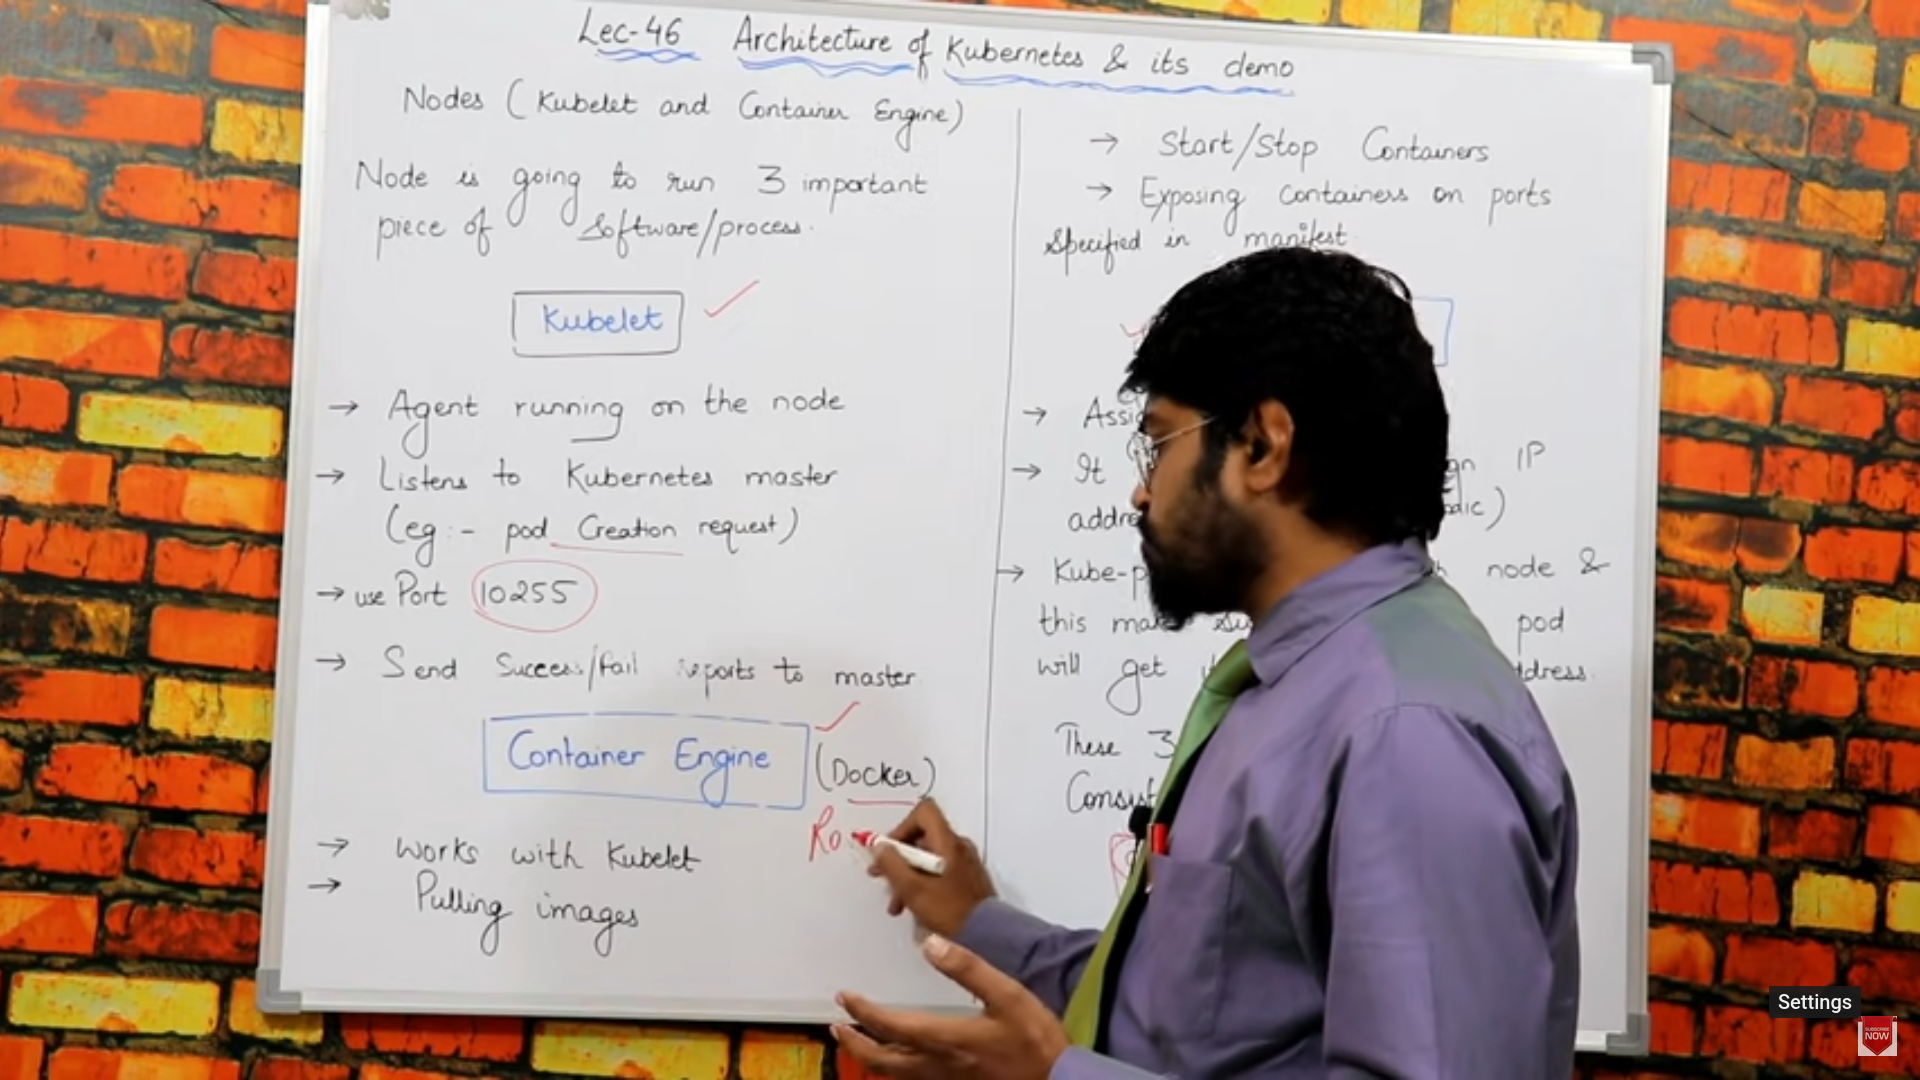 Lec-46 Architecture of Kubernetes & its demo
Nodes (Kubelet and Container Engine)
Node is going to run 3 important
piece of Software/process.
Kubelet
→ Agent running on the node
→ Listens to Kubernetes master
(eg:- pod Creation request)
→ use Port 10255
→ Send Success/Fail reports to master
Container Engine (Docker)
→ works with Kubelet
→ Pulling images
→ Start/Stop Containers
→ Exposing containers on ports
Specified in manifest
→
→ It IP
→ node &
this pod
will get
These 3
Settings
SUBSCRIBE
NOW